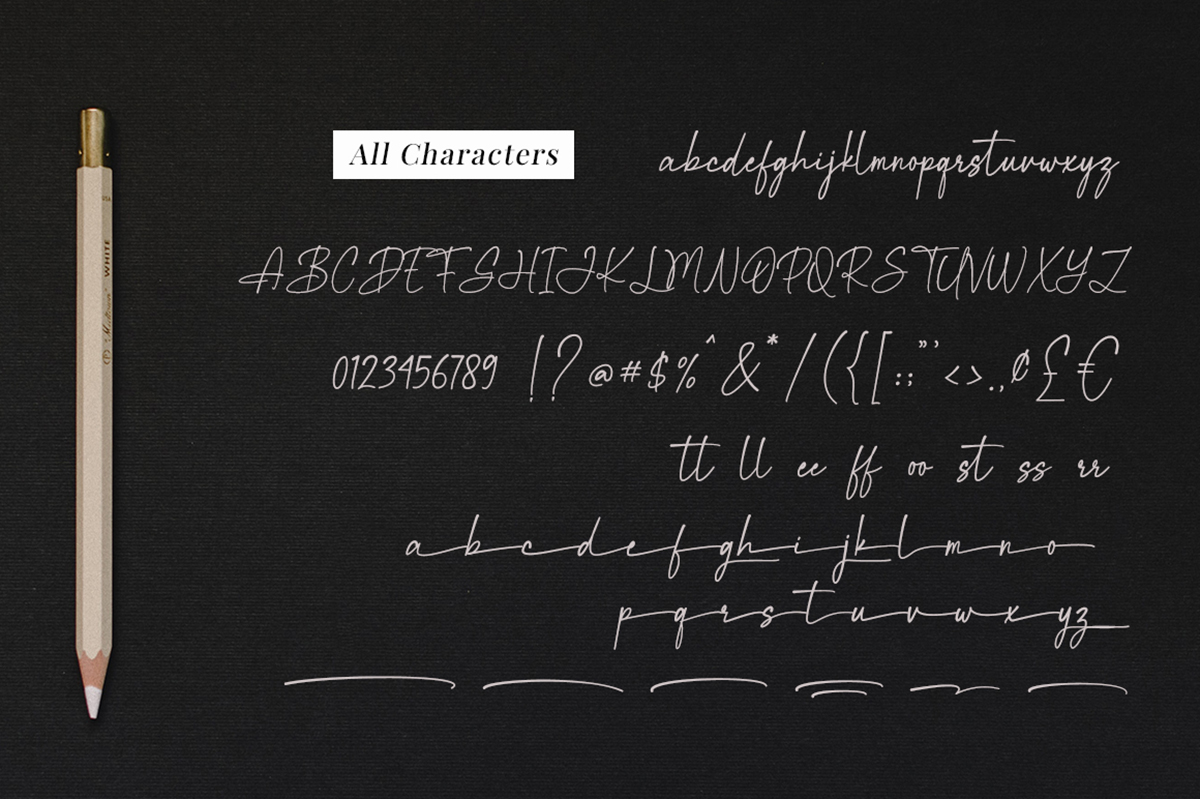 All Characters
abcdefghijklmnopqrstuvwxyz
ABCDEFGHIJKLMNOPQRSTUVWXYZ
0123456789 !?@#$%^&*/({[:;"'<>.,¢£€
tt ll ee ff oo st ss rr
a b c d e f g h i j k l m n o
p q r s t u v w x y z
WHITE